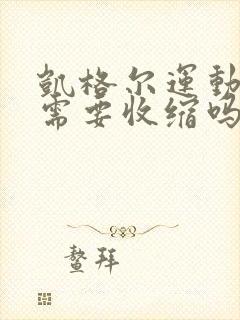 凱格尔運動
需要收缩吗
鳌拜